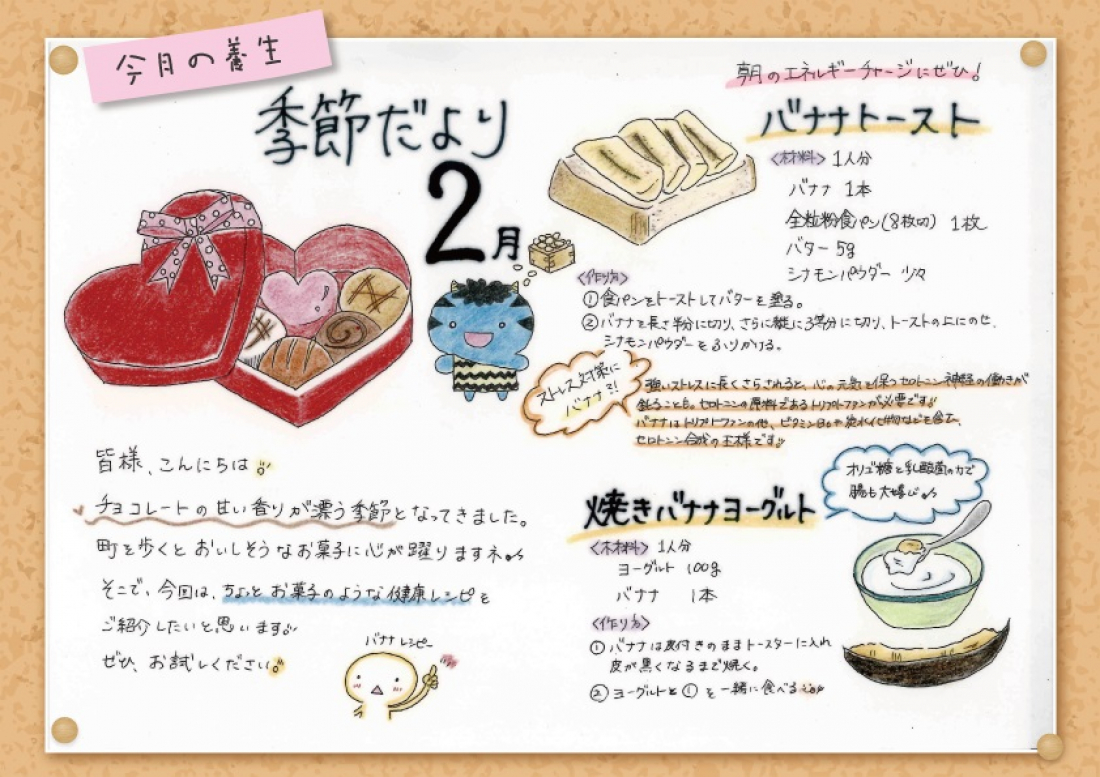 今月の養生
季節だより
2月
皆様、こんにちは
チョコレートの甘い香りが漂う季節となってきました。
町を歩くとおいしそうなお菓子に心が躍りますネ
そこで、今回は、ちょっとお菓子のような健康レシピを
ご紹介したいと思います
ぜひ、お試しください
バナナレシピー
朝のエネルギーチャージにぜひ!
バナナトースト
〈材料〉1人分
バナナ 1本
全粒粉食パン(8枚切) 1枚
バター 5g
シナモンパウダー 少々
〈作り方〉
①食パンをトーストしてバターを塗る。
②バナナを長さ半分に切り、さらに縦に3等分に切り、トーストの上にのせ、
シナモンパウダーをふりかける。
ストレス対策に
バナナ?!
強いストレスに長くさらされると、心の元気を保つセロトニン神経の働きが
鈍ることも。セロトニンの原料であるトリプトファンが必要です
バナナはトリプトファンの他、ビタミンB6や炭水化物なども含む、
セロトニン合成の王様です
焼きバナナヨーグルト
オリゴ糖と乳酸菌の力で
腸も大喜び
〈材料〉1人分
ヨーグルト 100g
バナナ 1本
〈作り方〉
①バナナは皮付きのままトースターに入れ
皮が黒くなるまで焼く。
②ヨーグルトと①を一緒に食べる